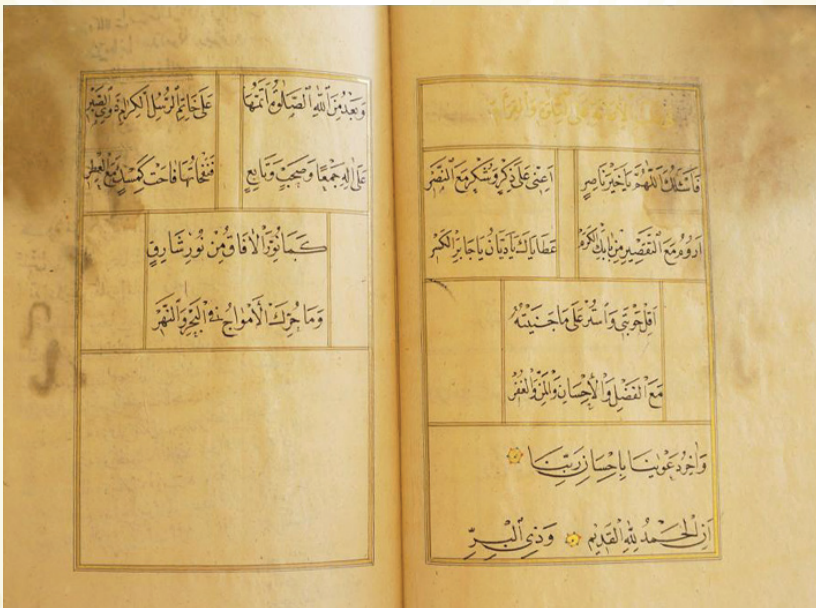 فَأَسْئَلُكَ اللّٰهُمَّ يَا خَيْرَ نَاصِرٍ اَعِنّى عَلَى ذِكْرٍ وَشُكْرٍ مَعَ النَّصْرِ
اَرُومُ مَعَ التَّقْصِيرِ مِنْ بَابِكَ الكَرَمْ عَطَايَاكَ يَا دَيَّانُ يَا جَابِرَ الكَسْرِ
اَقِلْ حَوْبَتِى وَاسْتُرْ عَلَى مَا جَنَيْتُهُ
مَعَ الْفَضْلِ وَالْاِحْسَانِ وَالْمَنِّ وَالْغُفْرِ
وَاٰخِرُ دَعْوٰينَا بِاِحْسَانِ رَبِّنَا
اَنِ الْحَمْدُ لِلّٰهِ الْقَدِيمِ وَذِى الْبِرِّ
وَبَعْدُ مِنَ اللّٰهِ الصَّلٰوةُ اَتَمُّهَا عَلَى خَاتَمِ الرُّسْلِ الْكِرَامِ ذَوِى الصَّبْرِ
عَلَى اٰلِهِ جَمْعًا وَصَحْبٍ وَتَابِعٍ فَنَفْحَاتُهَا فَاحَتْ كَمِسْكٍ مَعَ الْعِطْرِ
كَمَا نُوِّرَ الْاٰفَاقُ مِنْ نُورِ شَارِقٍ
وَمَا حُرِّكَ الْاَمْوَاجُ فِى الْبَحْرِ وَالنَّهْرِ